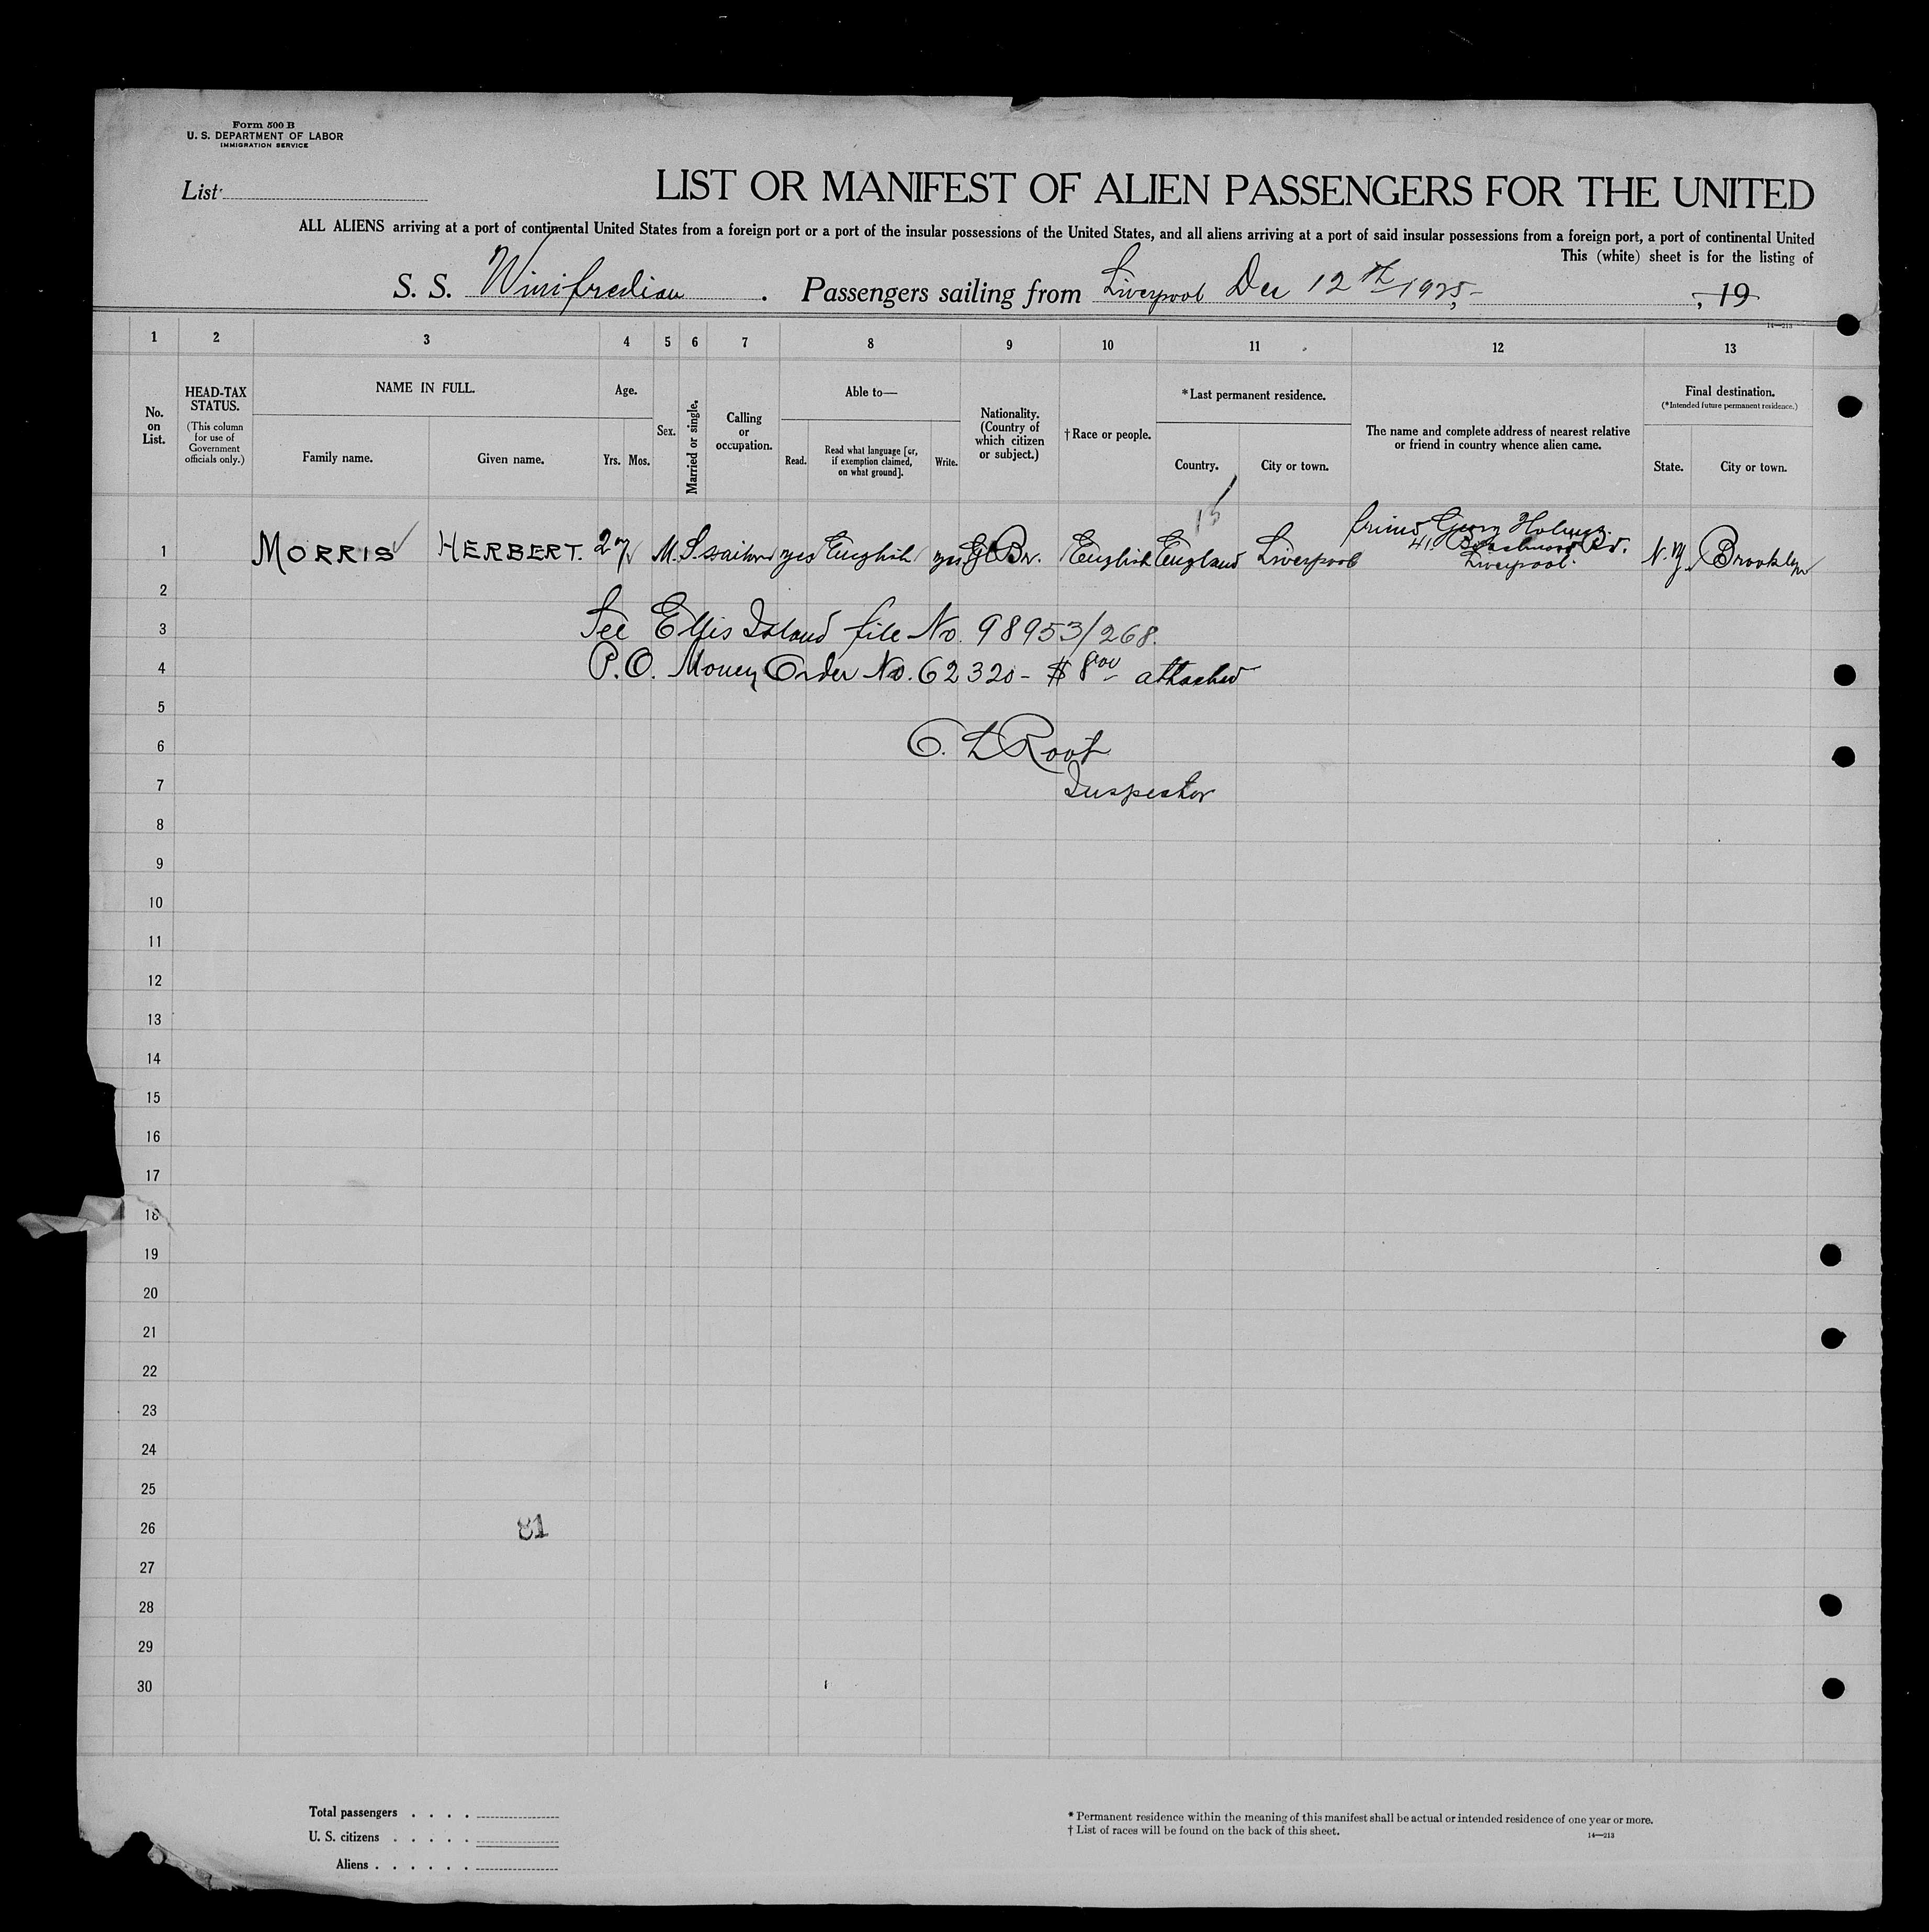 Form 500 B
U. S. DEPARTMENT OF LABOR
IMMIGRATION SERVICE
List
LIST OR MANIFEST OF ALIEN PASSENGERS FOR THE UNITED
ALL ALIENS arriving at a port of continental United States from a foreign port or a port of the insular possessions of the United States, and all aliens arriving at a port of said insular possessions from a foreign port, a port of continental United
This (white) sheet is for the listing of
S. S. Winifredian . Passengers sailing from Liverpool Dec 12th 1925 , 19
14—213
1 2 3 4 5 6 7 8 9 10 11 12 13
No. on List.
HEAD-TAX STATUS.
(This column for use of Government officials only.)
NAME IN FULL.
Family name. Given name.
Age.
Yrs. Mos.
Sex.
Married or single.
Calling or occupation.
Able to—
Read. Read what language [or, if exemption claimed, on what ground]. Write.
Nationality. (Country of which citizen or subject.)
† Race or people.
* Last permanent residence.
Country. City or town.
The name and complete address of nearest relative or friend in country whence alien came.
Final destination.
(*Intended future permanent residence.)
State. City or town.
15
1 MORRIS HERBERT. 27 M. S sailor yes English yes Gt Br. English England Liverpool friend George Holmes 41 Rd. Liverpool. N.Y. Brooklyn
2
3 See Ellis Island file No. 98953/268.
4 P.O. Money Order No. 62320 - $8.00 attached
5
6 C. L Root
7 Inspector
8
9
10
11
12
13
14
15
16
17
18
19
20
21
22
23
24
25
26 81
27
28
29
30
Total passengers . . . .
U. S. citizens . . . . .
Aliens . . . . . .
* Permanent residence within the meaning of this manifest shall be actual or intended residence of one year or more.
† List of races will be found on the back of this sheet.
14—213